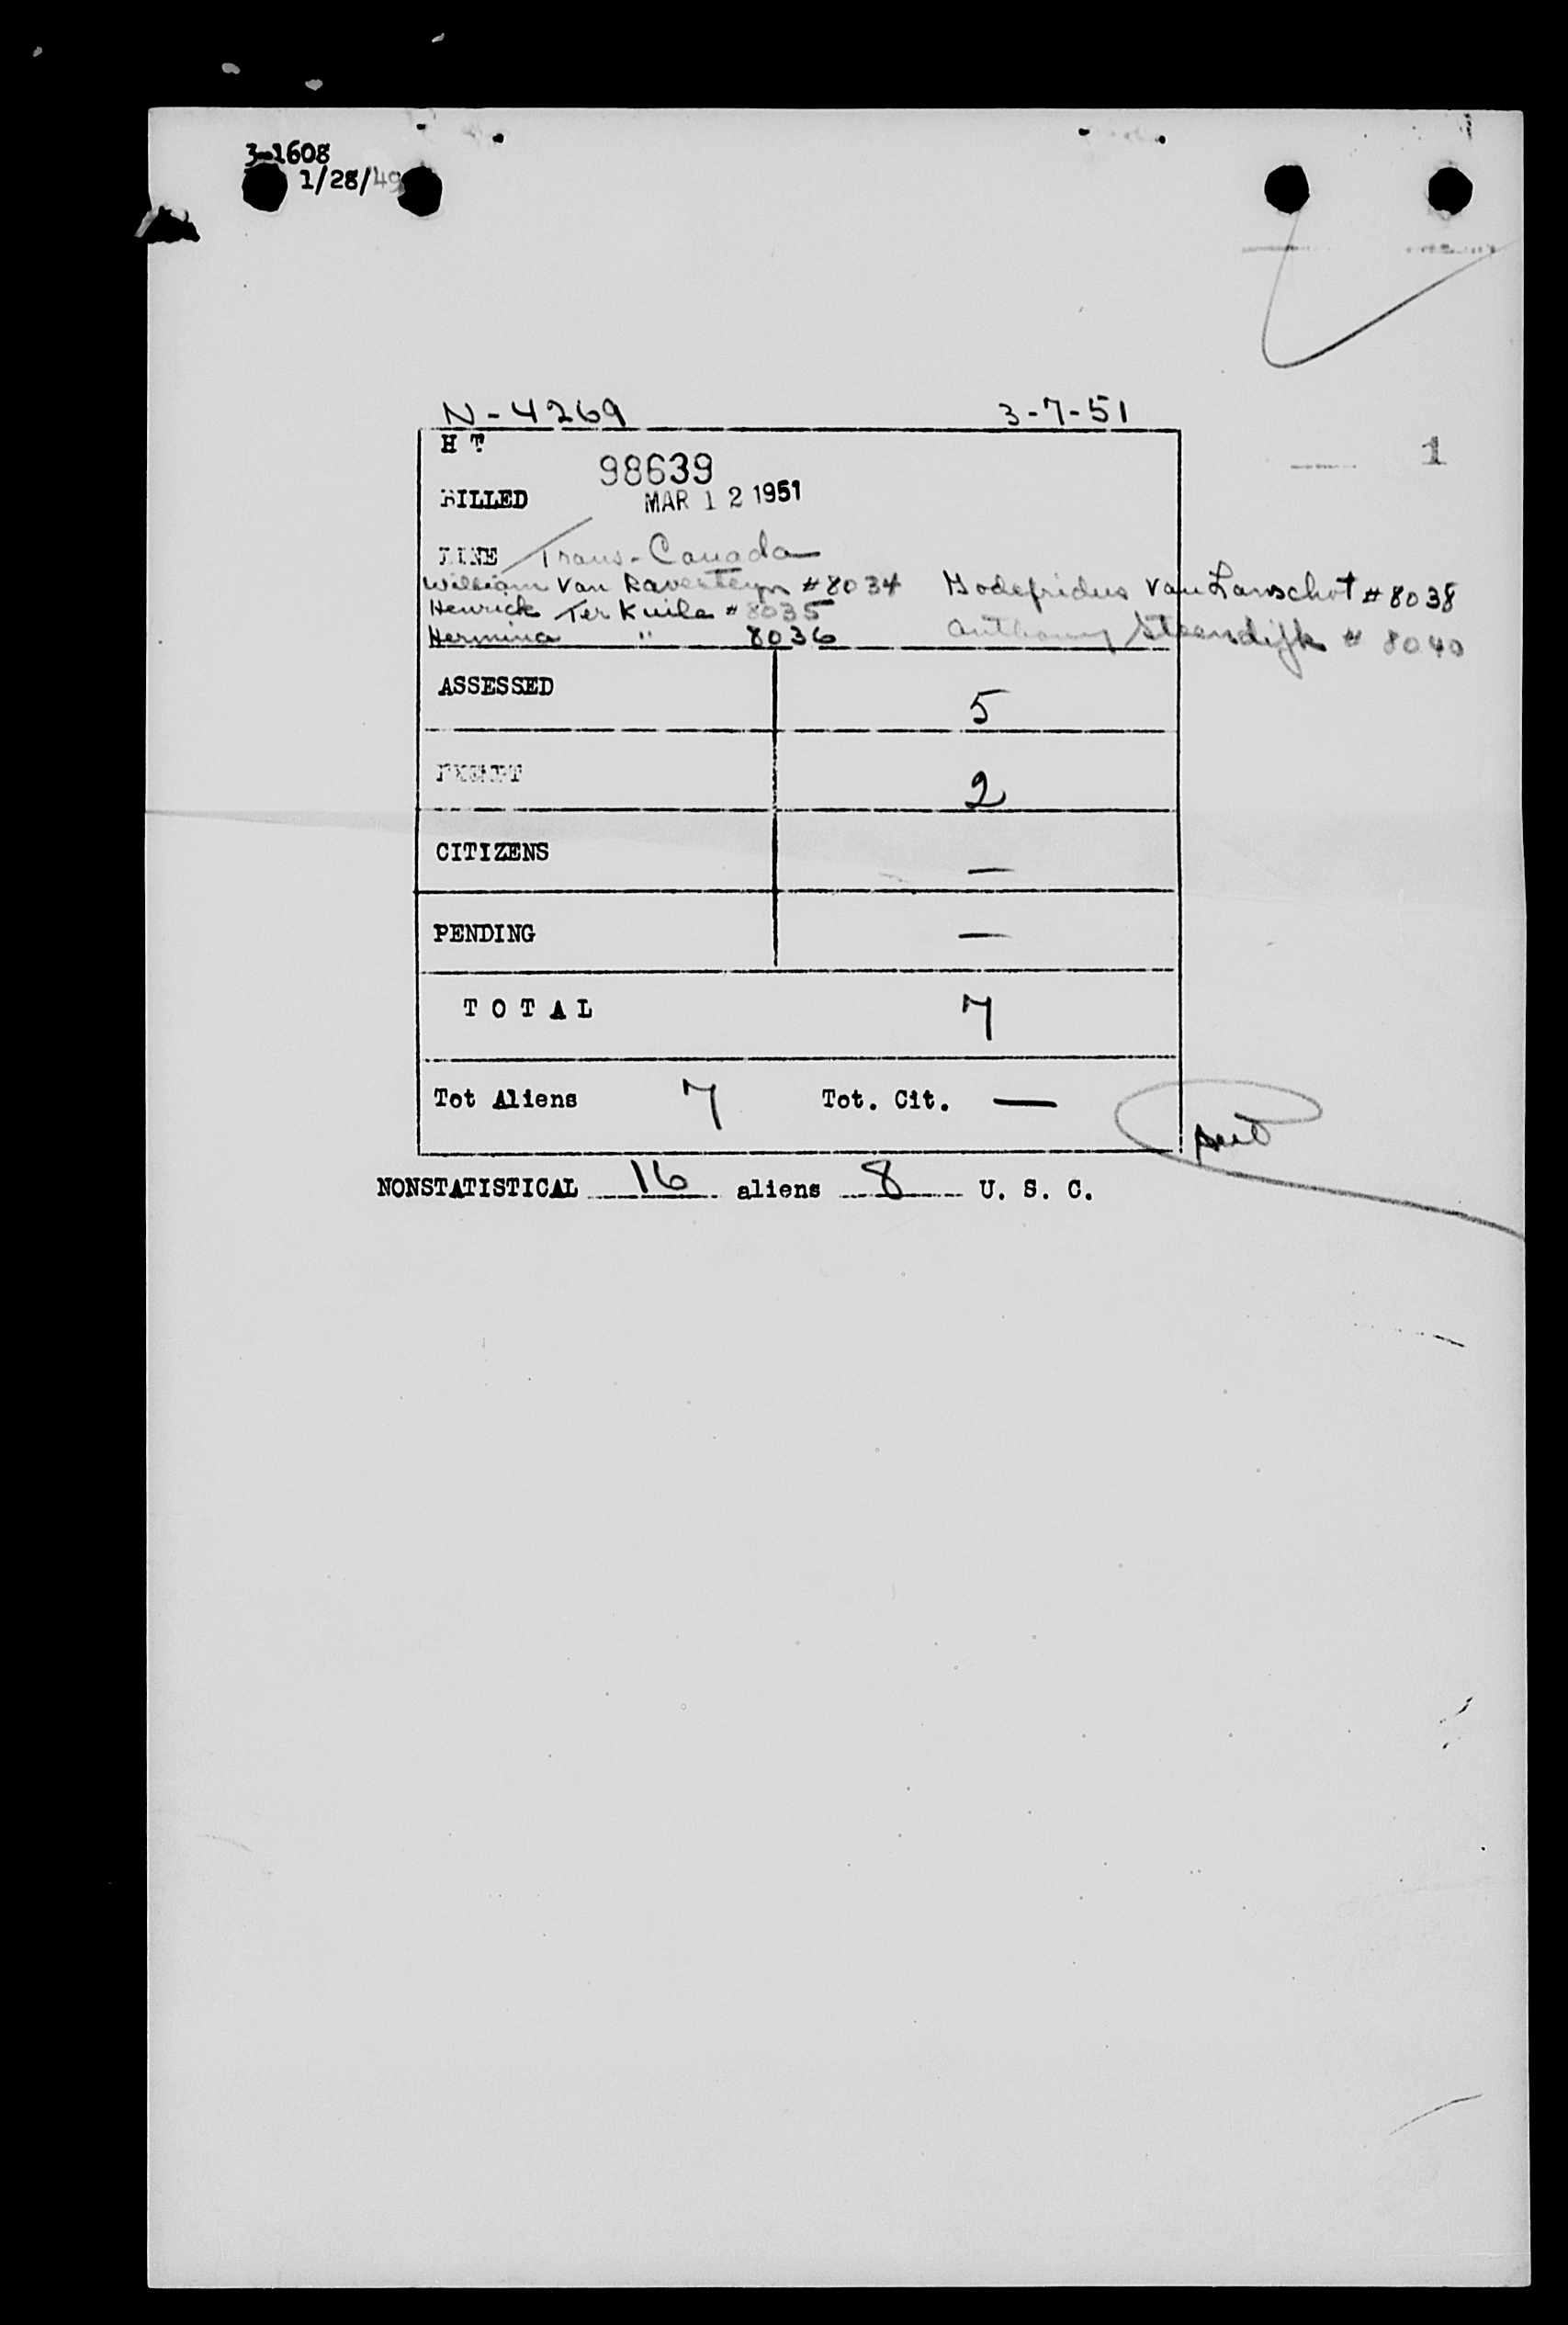 3-1608
1/28/49
N-4269 3-7-51
H T
98639
BILLED MAR 12 1951
1
LINE Trans-Canada
William Van Ravesteyn #8034 Godefridus Van Lanschot #8038
Henrick Ter Kuile #8035
Hermina " 8036 Anthony Steendijk # 8040
ASSESSED 5
EXEMPT 2
CITIZENS —
PENDING —
T O T A L 7
Tot Aliens 7 Tot. Cit. —
NONSTATISTICAL 16 aliens 8 U. S. C.